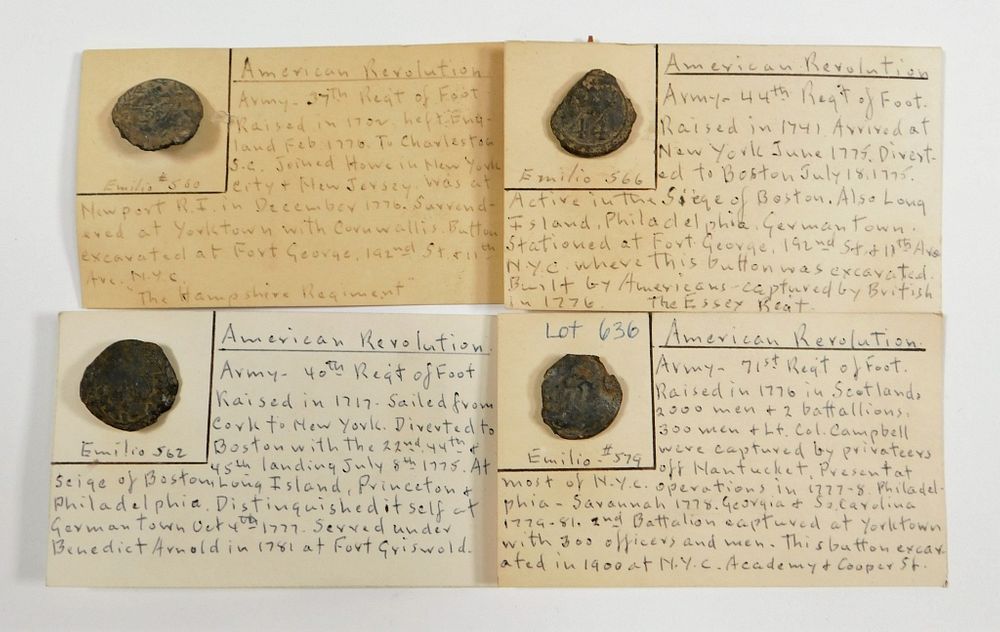 American Revolution
Army - 37th Reg't of Foot
Raised in 1702. Left Eng-
land Feb 1776. To Charleston
S.C. Joined Howe in New York
City & New Jersey. Was at
Emilio # 560
Newport R.I. in December 1776. Surrend-
ered at Yorktown with Cornwallis. Button
excavated at Fort George, 192nd St. & 11th
Ave. N.Y.C.
"The Hampshire Regiment"
American Revolution
Army - 44th Reg't of Foot.
Raised in 1741. Arrived at
New York June 1775. Divert-
ed to Boston July 18, 1775.
44
Emilio 566
Active in the Siege of Boston. Also Long
Island, Philadelphia, Germantown.
Stationed at Fort George, 192nd St. & 11th Ave
N.Y.C. where this button was excavated.
Built by Americans - captured by British
in 1776. The Essex Reg't.
American Revolution.
Army - 40th Reg't of Foot
Raised in 1717. Sailed from
Cork to New York. Diverted to
Boston with the 22nd, 44th &
45th landing July 8th 1775. At
Emilio 562
Seige of Boston, Long Island, Princeton &
Philadelphia. Distinguished itself at
Germantown Oct 4th 1777. Served under
Benedict Arnold in 1781 at Fort Griswold.
Lot 636
American Revolution.
Army - 71st Reg't of Foot.
Raised in 1776 in Scotland,
2000 men & 2 battallions.
300 men & Lt. Col. Campbell
were captured by privateers
off Nantucket. Present at
Emilio # 579
most of N.Y.C. operations in 1777-8. Philadel-
phia - Savannah 1778. Georgia & So. Carolina
1779-81. 2nd Battalion captured at Yorktown
with 300 officers and men. This button excav-
ated in 1900 at N.Y.C. Academy & Cooper St.